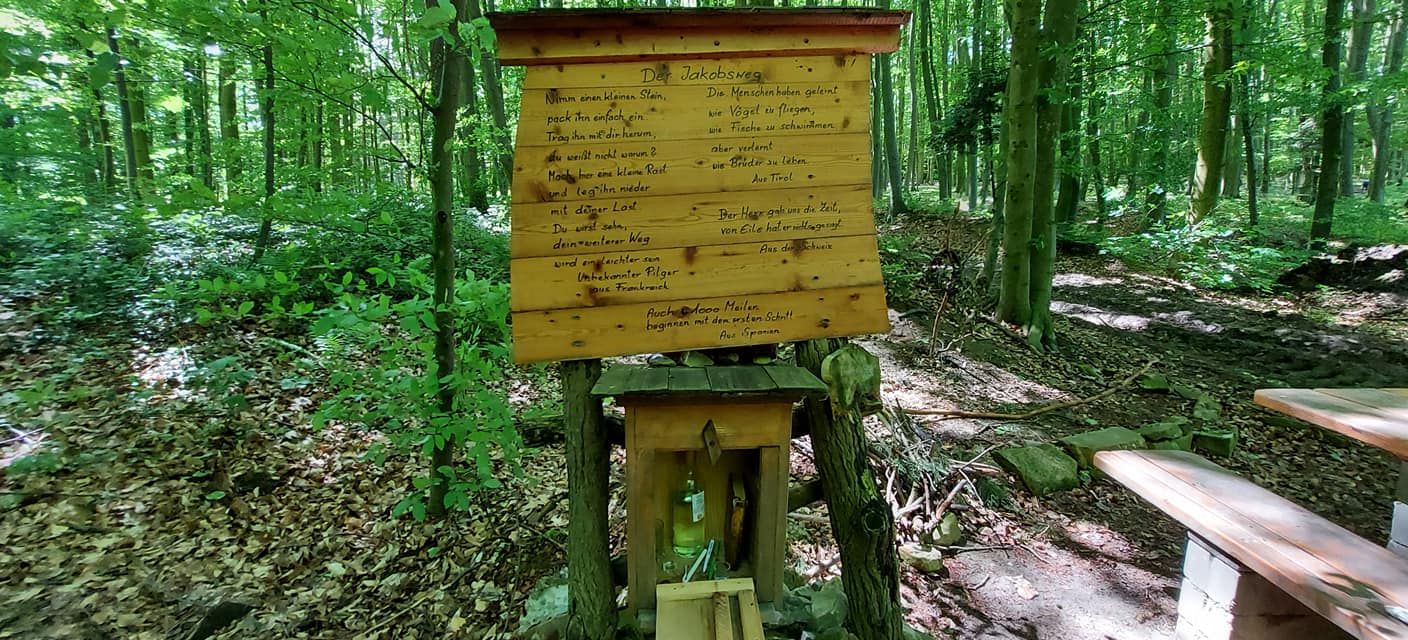 Der Jakobsweg
Nimm einen kleinen Stein,
pack ihn einfach ein.
Trag ihn mit dir herum,
du weißt nicht warum?
Mach hier eine kleine Rast
und leg ihn nieder
mit deiner Last
Du wirst sehn,
dein weiterer Weg
wird ein leichter sein
Unbekannter Pilger
aus Frankreich
Die Menschen haben gelernt
wie Vögel zu fliegen,
wie Fische zu schwimmen
aber verlernt
wie Brüder zu leben.
Aus Tirol
Der Herr gab uns die Zeit,
von Eile hat er nichts gesagt
Aus der Schweiz
Auch 1000 Meilen
beginnen mit den ersten Schritt
Aus Spanien